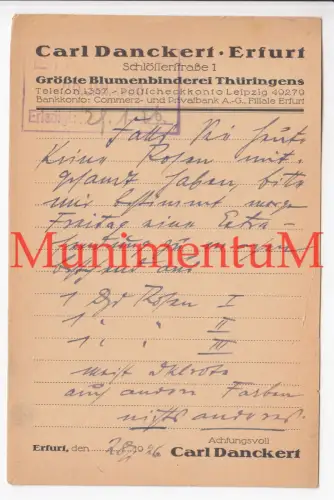 Carl Danckert · Erfurt
Schlösserstraße 1
Größte Blumenbinderei Thüringens
Telefon 1357 - Postscheckkonto Leipzig 49279
Bankkonto: Commerz- und Privatbank A.-G., Filiale Erfurt
Falls Sie heute
Keine Rosen mit-
gesandt haben, bitte
mir bestimmt morgen
Freitag eine Extra-
MunimentuM
1 Dzd Rosen I
1 " " II
1 " " III
meist
auch andere Farben
nichts anderes.
Achtungsvoll
Erfurt, den 28/1 1926 Carl Danckert